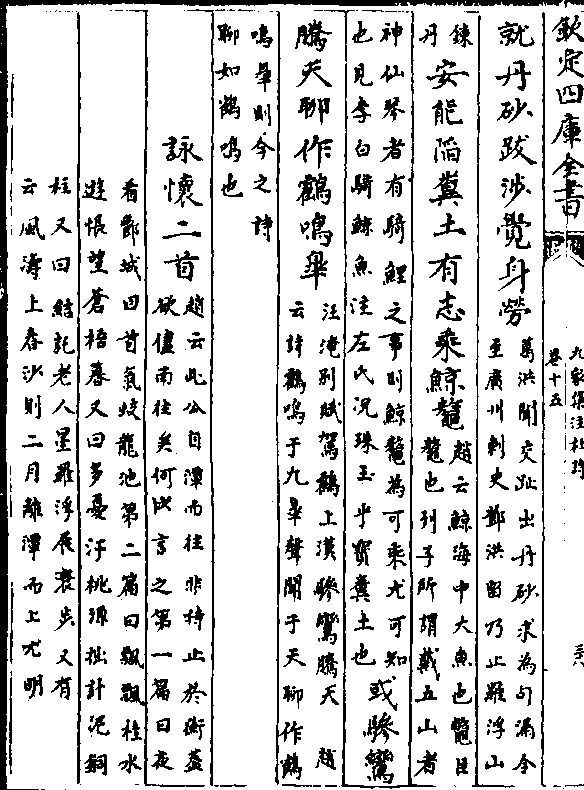 欽定四庫全書
九家集注杜詩
卷十五
就丹砂跋涉覺身勞
葛洪聞交趾出丹砂求為勾漏令
至廣州刺史鄧洪留乃止羅浮山
鍊
丹
安能陷糞土有志乘鯨鼇
趙云鯨海中大魚也鼇巨
鼇也列子所謂戴五山者
神仙琴者有騎鯉之事則鯨鼇為可乘尤可知
也見李白騎鯨魚注左氏況珠玉乎寳糞土也
或驂鸞
騰天聊作鶴鳴皋
江淹別賦駕鶴上漢驂鸞騰天 趙
云詩鶴鳴于九皋聲聞于天聊作鶴
鳴皋則今之詩
聊如鶴鳴也
詠懷二首
趙云此公自潭而往非特止於衡蓋
欲儘南往矣何以言之第一篇曰夜
看酆城回首氣蛟龍池第二篇曰飄飄桂水
遊悵望蒼梧暮又曰多憂汙桃源拙計泥銅
柱又曰結託老人星羅浮展衰步又有
云風濤上春沙則二月離潭而上尤明